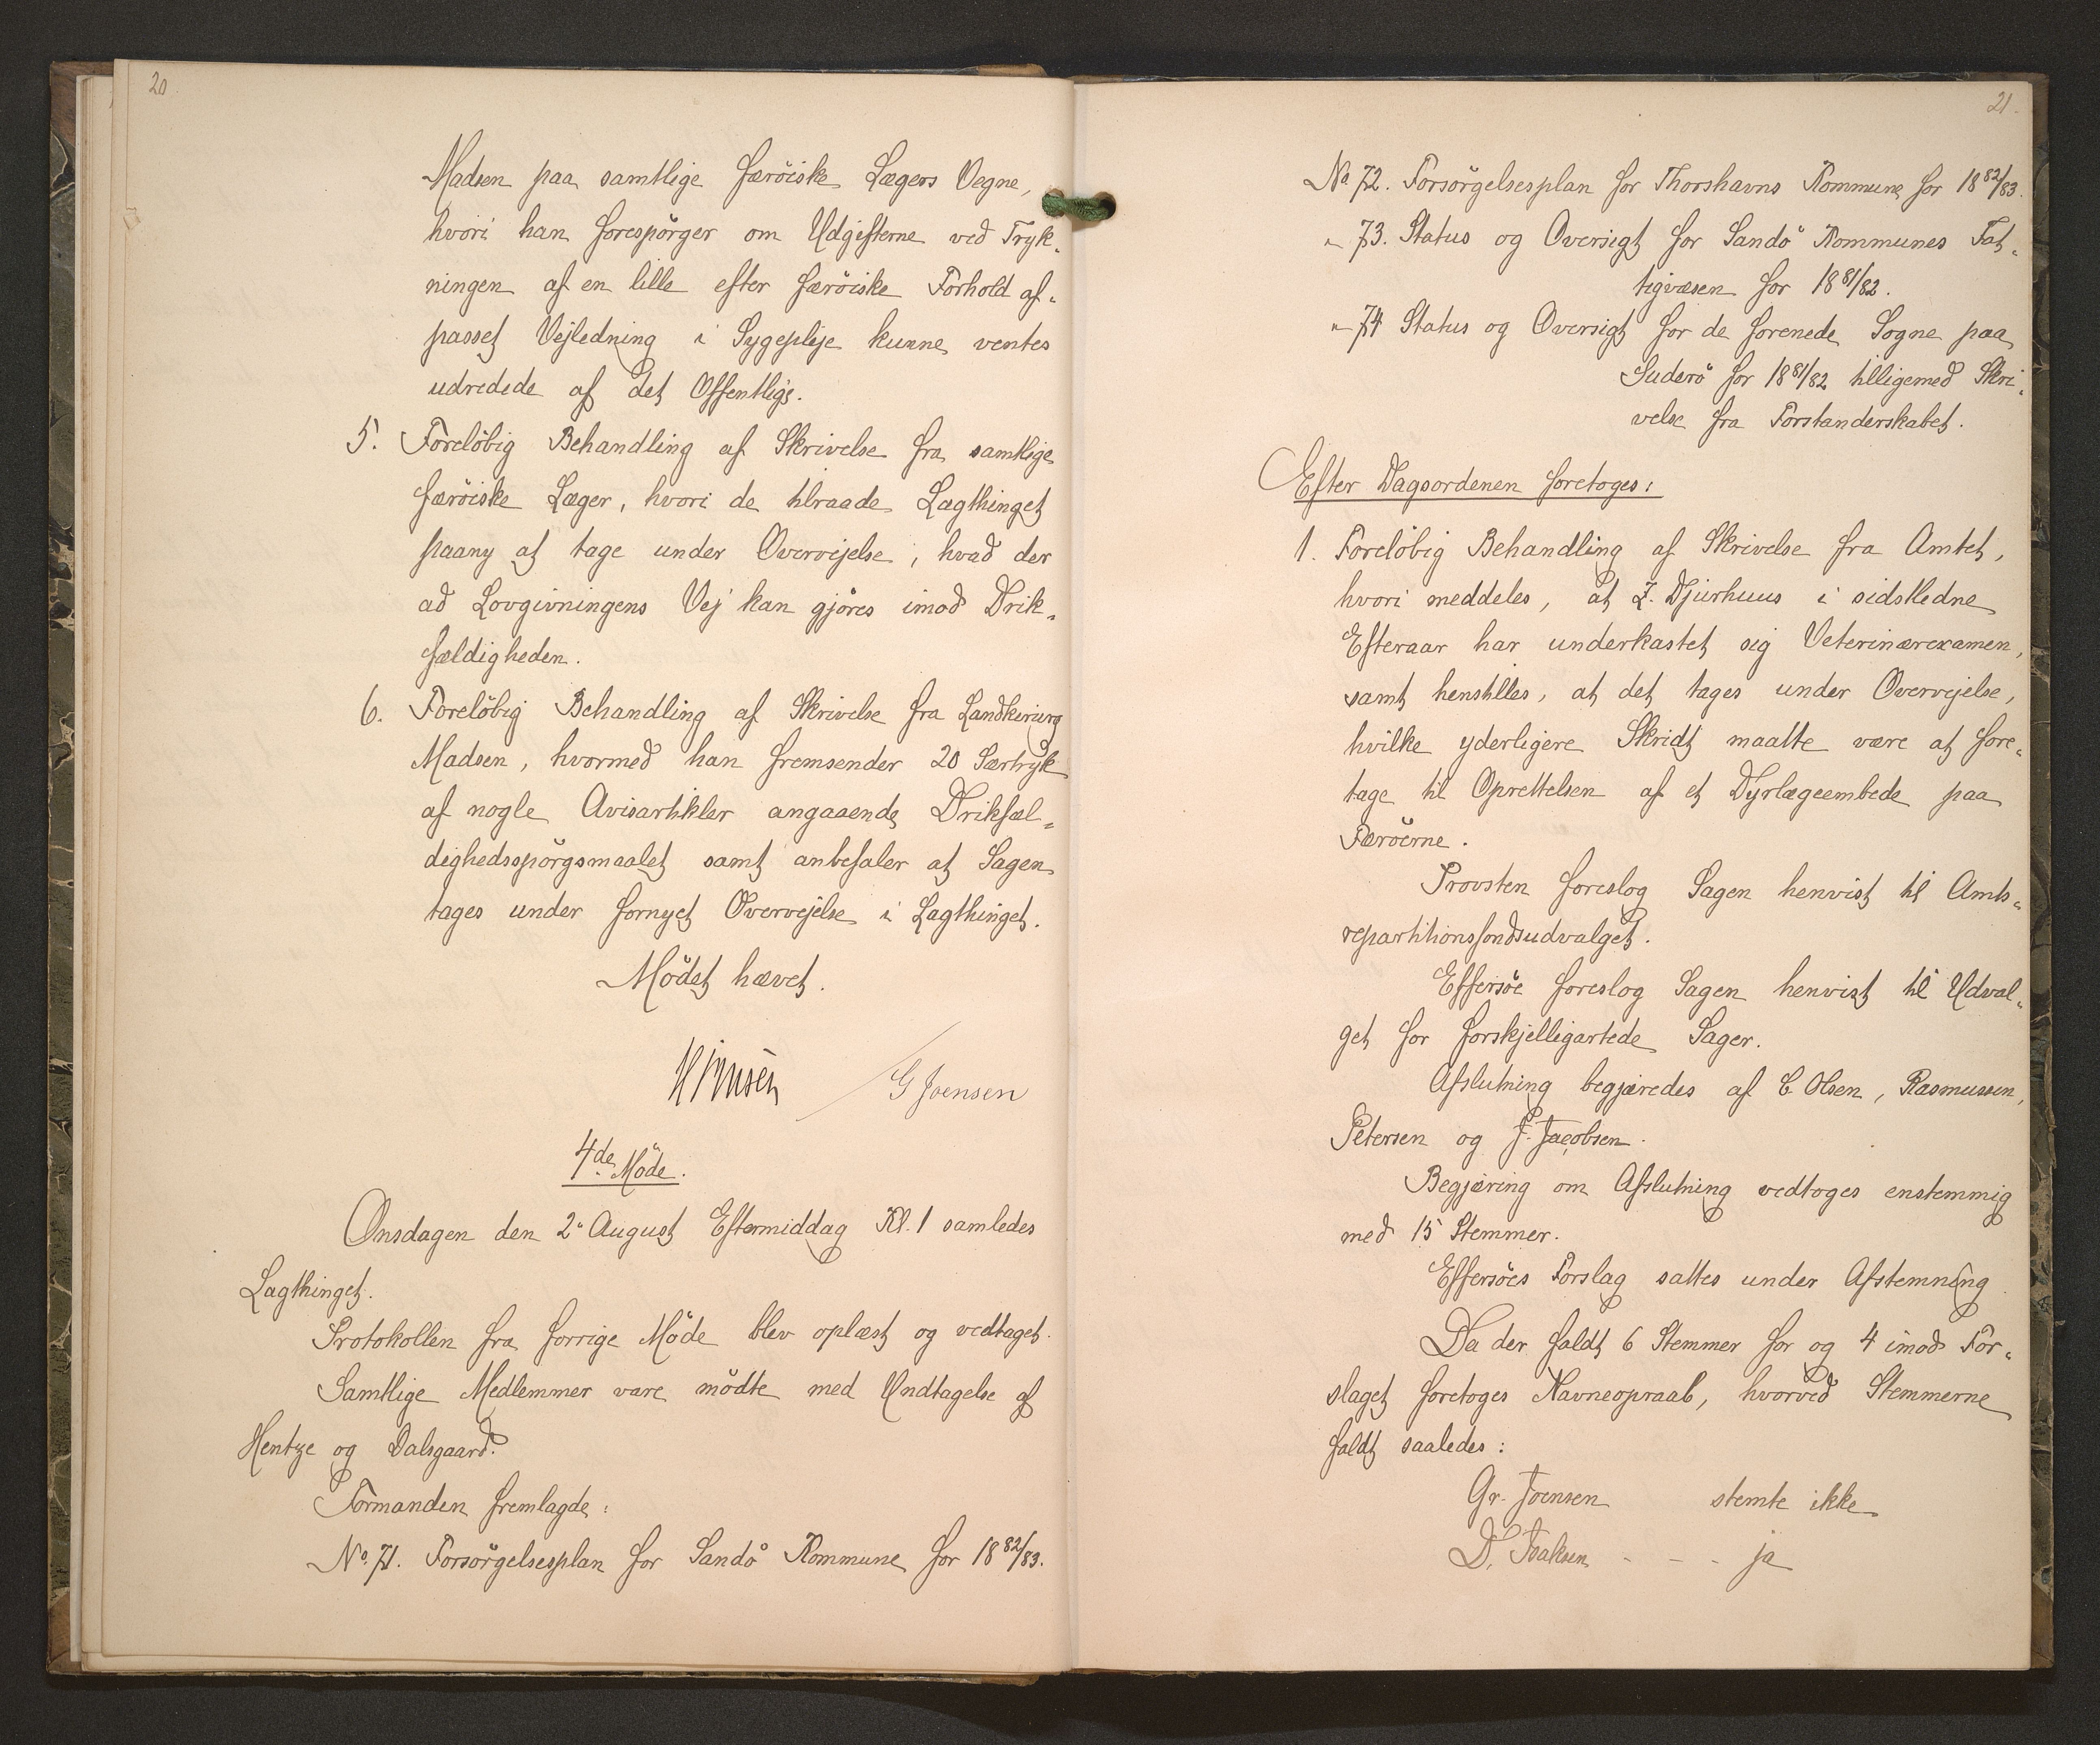 20
Madsen paa samtlige færöiske Lægers Vegne,
hvori han forespörger om Udgifterne ved Tryk-
ningen af en lille efter færöiske Forhold af-
passet Vejledning i Sygepleje kunne ventes
udredede af det Offentlige.
5. Forelöbig Behandling af Skrivelse fra samtlige
færöiske Læger, hvori de tilraade Lagthinget
paany at tage under Overvejelse, hvad der
ad Lovgivningens Vej kan gjöres imod Drik-
fældigheden.
6. Forelöbig Behandling af Skrivelse fra Landkirurg
Madsen, hvormed han fremsender 20 Særtryk
af nogle Avisartikler angaaende Drikfæl-
dighedsspörgsmaalet samt anbefaler at Sagen
tages under fornyet Overvejelse i Lagthinget.
Mödet hævet.
G Joensen
4de Möde.
Onsdagen den 2. August Eftermiddag Kl. 1 samledes
Lagthinget.
Protokollen fra forrige Möde blev oplæst og vedtaget.
Samtlige Medlemmer vare mödte med Undtagelse af
Hentze og Dalsgaard.
Formanden fremlagde:
No. 71. Forsörgelsesplan for Sandö Kommune for 1882/83.
21.
No 72. Forsörgelsesplan for Thorshavns Kommune for 1882/83.
" 73. Status og Oversigt for Sandö Kommunes Fat-
tigvæsen for 1881/82.
" 74 Status og Oversigt for de forenede Sogne paa
Suderö for 1881/82 tilligemed Skri-
velse fra Forstanderskabet.
Efter Dagsordenen foretoges:
1. Forelöbig Behandling af Skrivelse fra Amtet,
hvori meddeles, at Z. Djurhuus i sidstledne
Efteraar har underkastet sig Veterinærexamen,
samt henstilles, at det tages under Overvejelse,
hvilke yderligere Skridt maatte være at fore-
tage til Oprettelsen af et Dyrlægeembede paa
Færöerne.
Provsten foreslog Sagen henvist til Amts-
repartitionsfondsudvalget.
Effersöe foreslog Sagen henvist til Udval-
get for forskjelligartede Sager.
Afslutning begjæredes af C. Olsen, Rasmussen,
Petersen og J. Jacobsen.
Begjæring om Afslutning vedtoges enstemmig
med 15 Stemmer.
Effersöes Forslag sattes under Afstemning
Da der faldt 6 Stemmer for og 4 imod For-
slaget foretoges Navneopraab, hvorved Stemmerne
faldt saaledes:
Gr. Joensen stemte ikke
D. Isaksen - - - ja